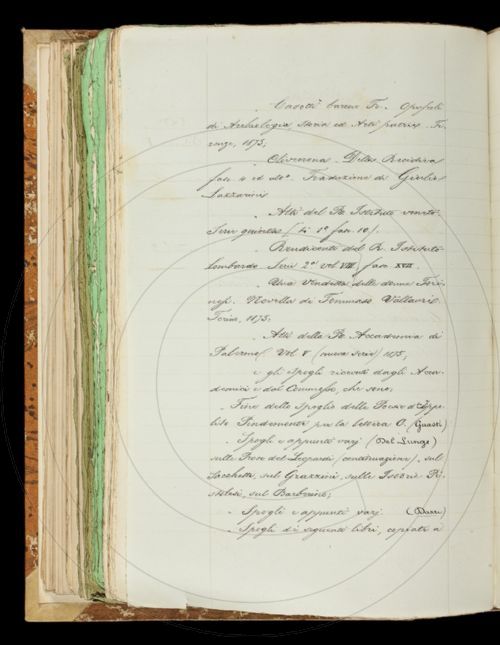 . Cavotti barone Fr. Opuscoli
di Archeologia, storia ed Arti patrie. Fi-
renze, 1875;
. Olivecrona. Della Recidiva
fasc. 4 ed ulto. Traduzione di Giulio
Lazzarini
. Atti del R. Istituto veneto.
Serie quinta (ti. 1° fasc. 10).
. Rendiconto del R. Istituto
lombardo. Serie 2a vol. VIII, fasc. XVII.
. Una vendetta delle donne
Novella di Tommaso Vallauri.
Torino, 1875;
. Atti della R. Accademia di
Palermo, Vol. V (nuova serie) 1875;
e gli Spogli ricevuti dagli Acca-
demici e dal Commesso, che sono:
. Fine dello Spoglio delle Poesie d'Ippo-
lito Pindemonte per la lettera O. (Guasti)
. Spogli e appunti varj (Del Lungo)
sulle Prose del Leopardi (continuazione), sul
Sacchetti, sul Grazzini, sulle Istorie Pi-
stolesi, sul Barberino;
. Spogli e appunti varj.
. Spogli di seguenti libri, copiati a